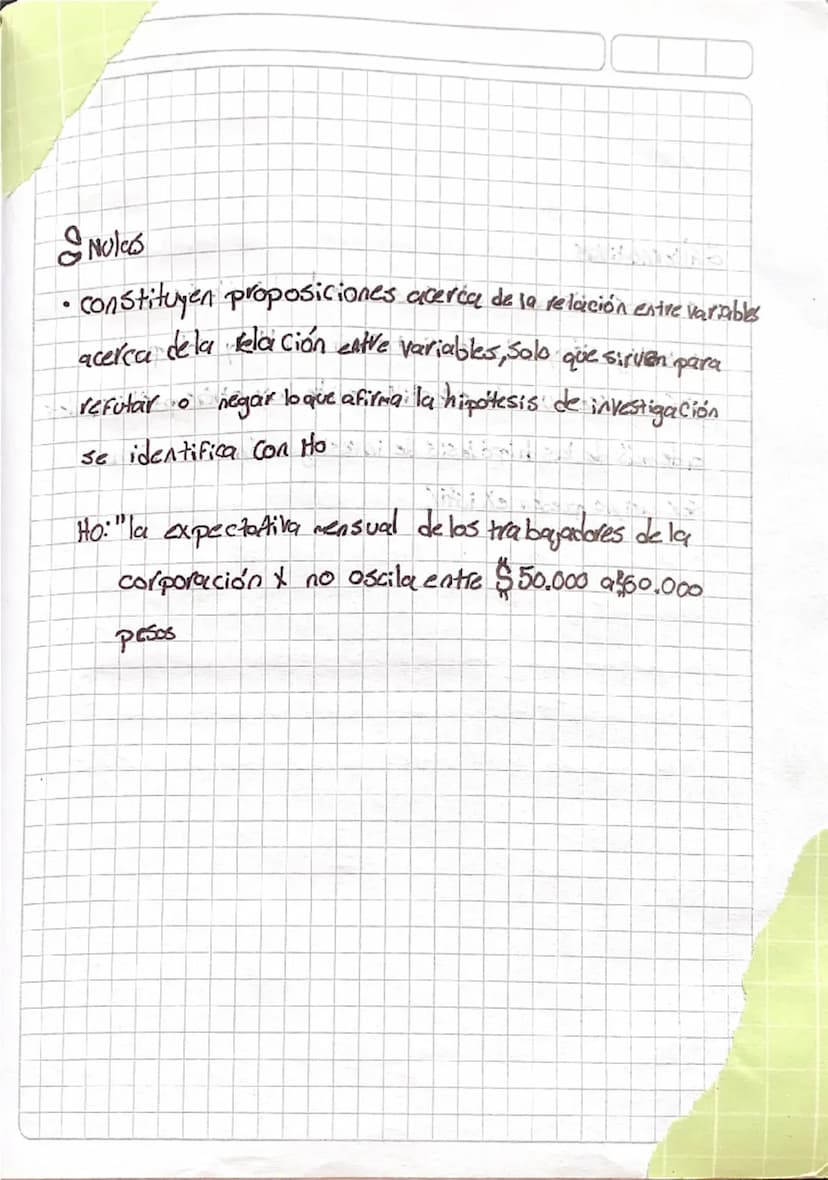 Nulas
• constituyen proposiciones acerca de la relación entre variables
acerca de la relación entre variables, solo que sirven para
refutar o negar lo que afirma la hipótesis de investigación
se identifica con Ho
Ho: "la expectativa mensual de los trabajadores de la
corporación X no oscila entre $50.000 a $60.000
pesos